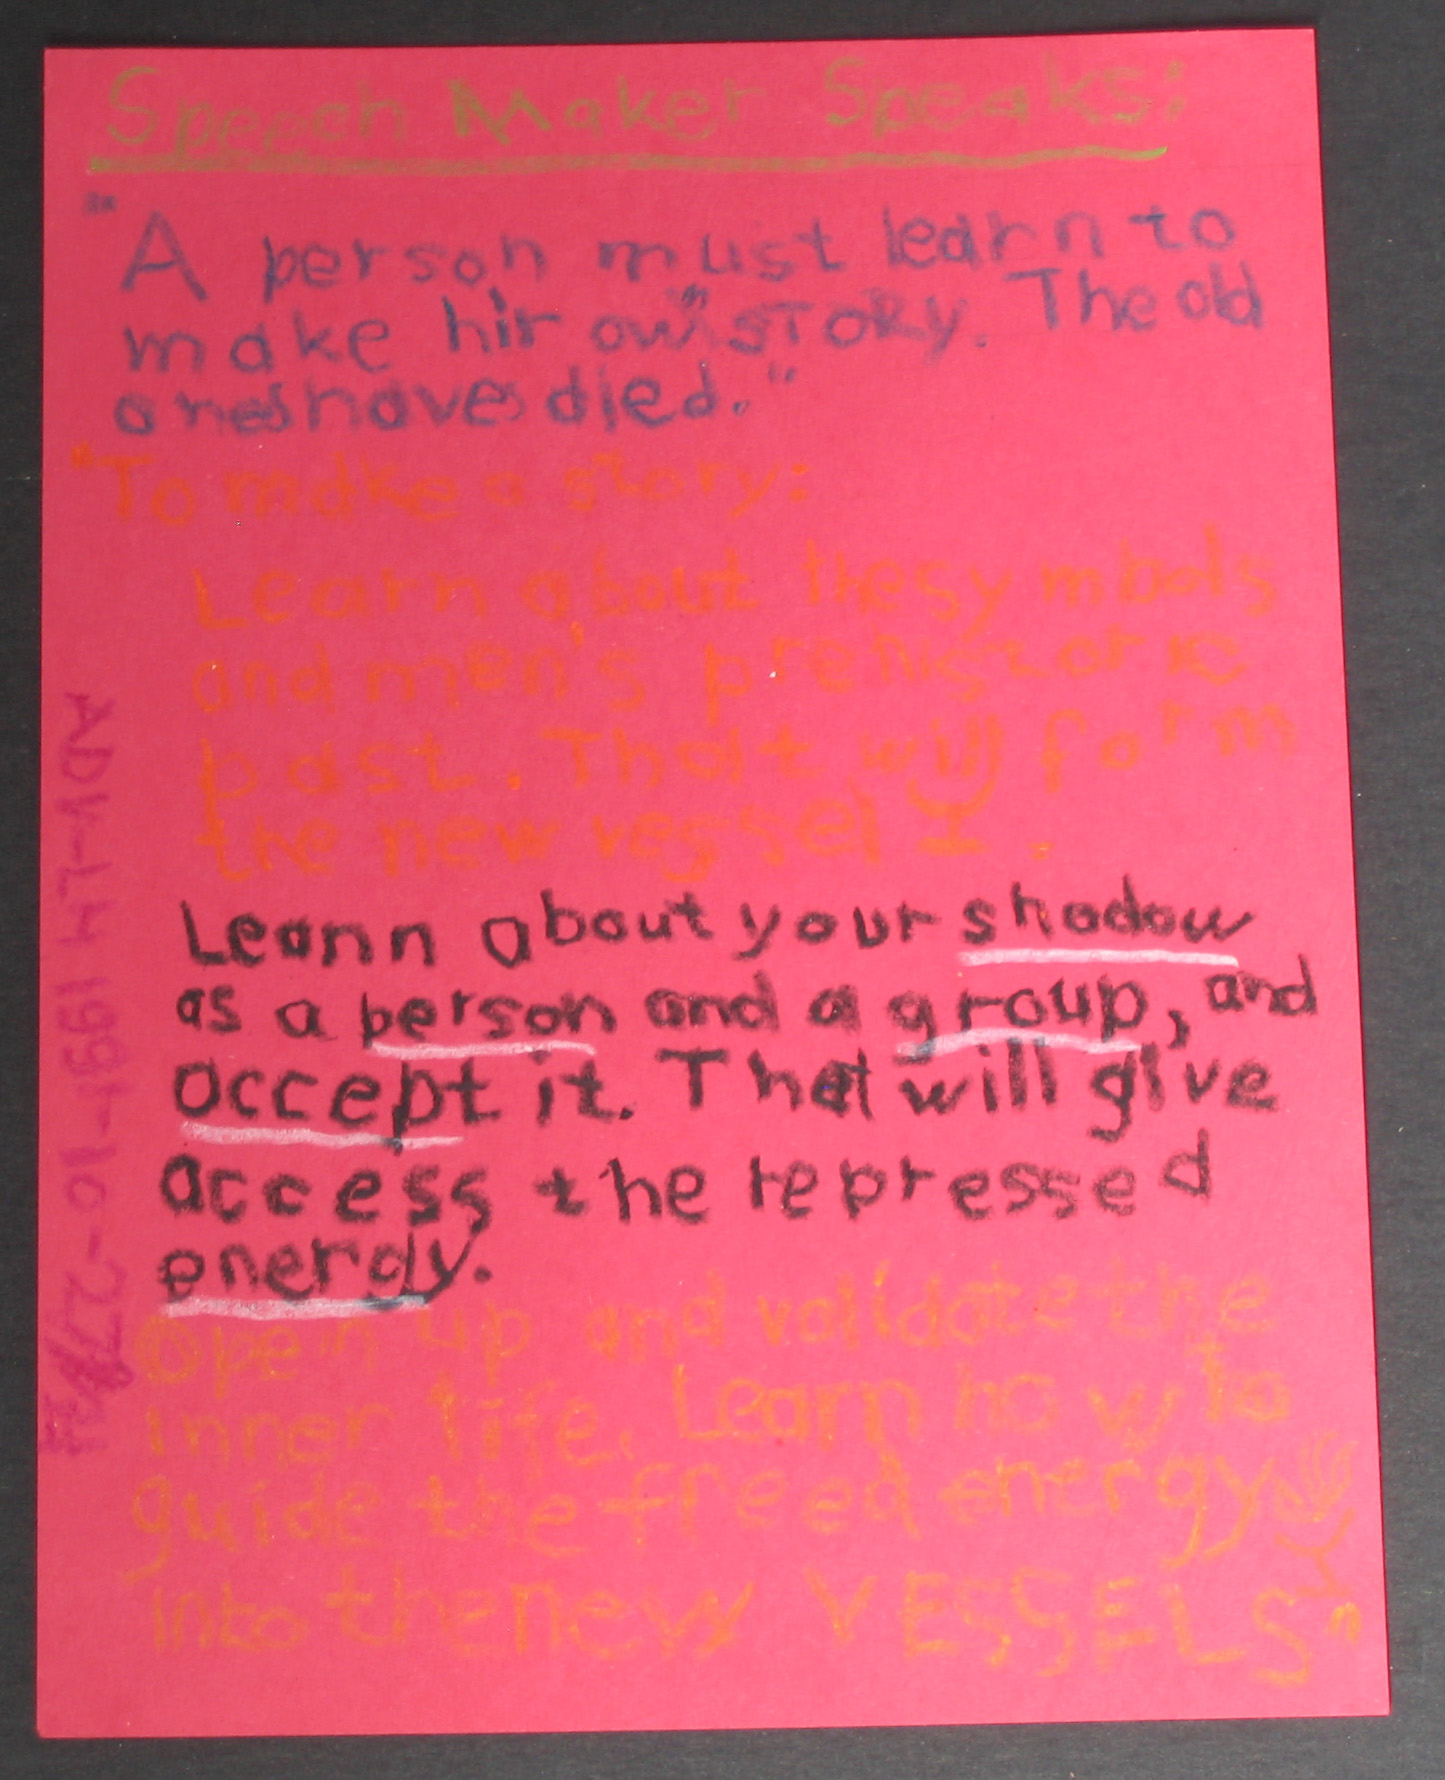 Speech Maker Speaks:
"A person must learn to
make hir own "STORY". The old
ones have died."
"To make a story:
Learn about the symbols
and men's prehistoric
past. That will form
the new vessel.
Leann about your shadow
as a person and a group, and
accept it. That will give
access the repressed
energy.
Open up and validate the
inner life. Learn how to
guide the freed energy
into the new VESSELS"
ADV-L4 1991-10-27